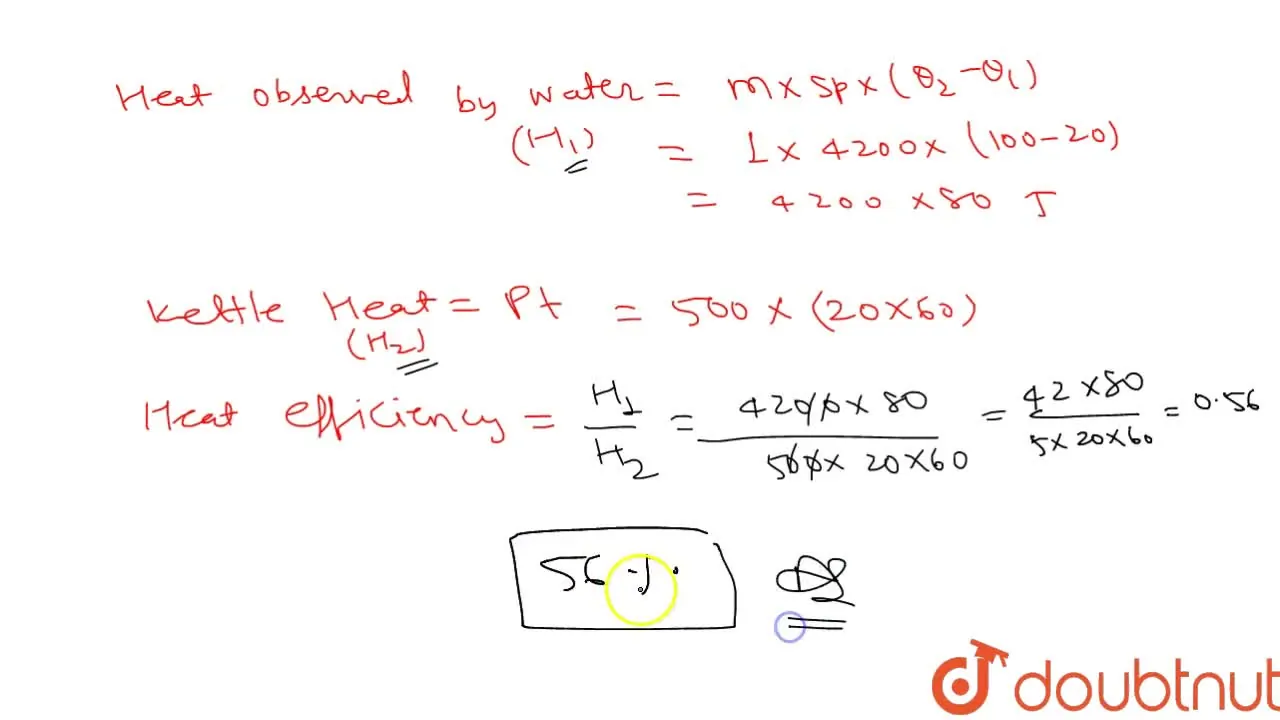 Heat observed by water = m × sp × (θ₂ - θ₁)
(H₁) = 1 × 4200 × (100 - 20)
= 4200 × 80 J
Kettle Heat = Pt = 500 × (20 × 60)
(H₂)
Heat efficiency = H₁/H₂ = 4200 × 80 / 500 × 20 × 60 = 42 × 80 / 5 × 20 × 60 = 0.56
56 %
doubtnut